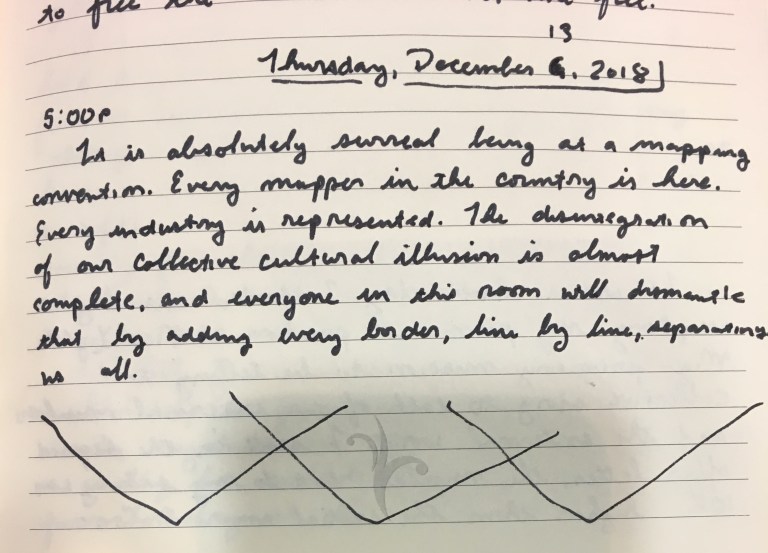 to free the free.
13
Thursday, December 6, 2018
5:00P
It is absolutely surreal being at a mapping
convention. Every mapper in the country is here.
Every industry is represented. The disintegration
of our collective cultural illusion is almost
complete, and everyone in this room will dismantle
that by adding every border, line by line, separating
us all.